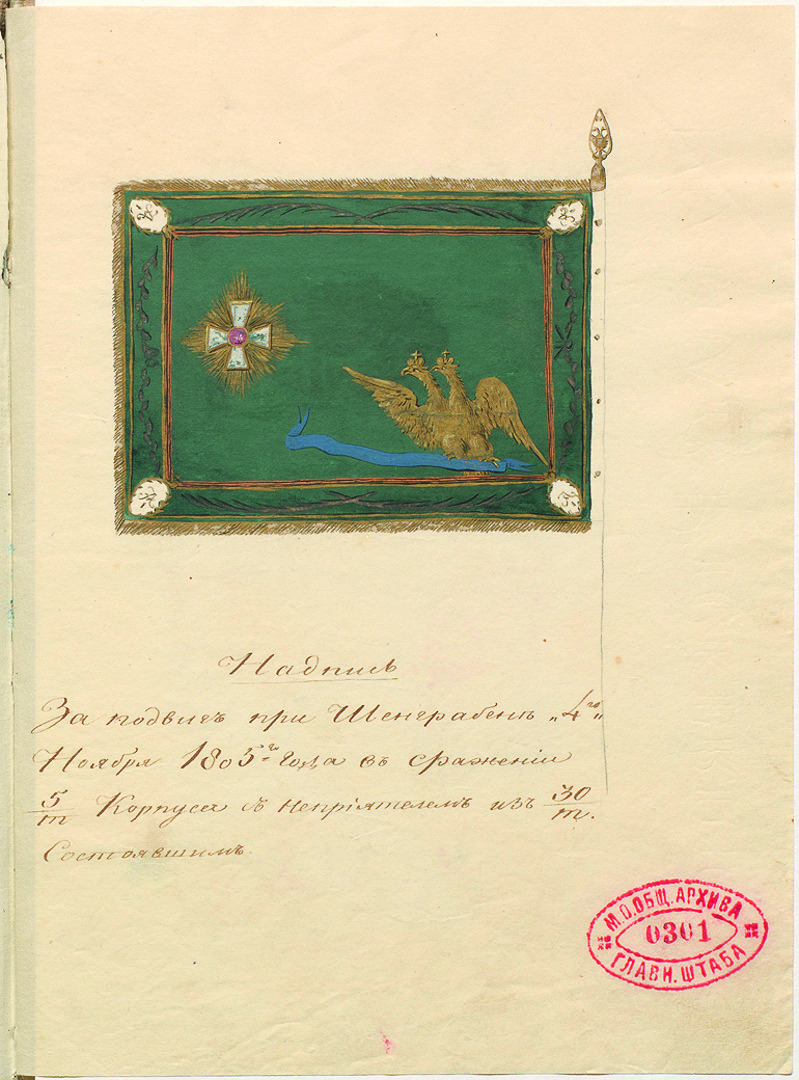 Надпись
За подвигъ при Шенграбенѣ „4го„
Ноября 1805го года въ сраженіи
5/т Корпуса съ непріятелемъ изъ 30/т.
Состоявшимъ.
М.О.ОБЩ.АРХИВА
0301
ГЛАВН.ШТАБА